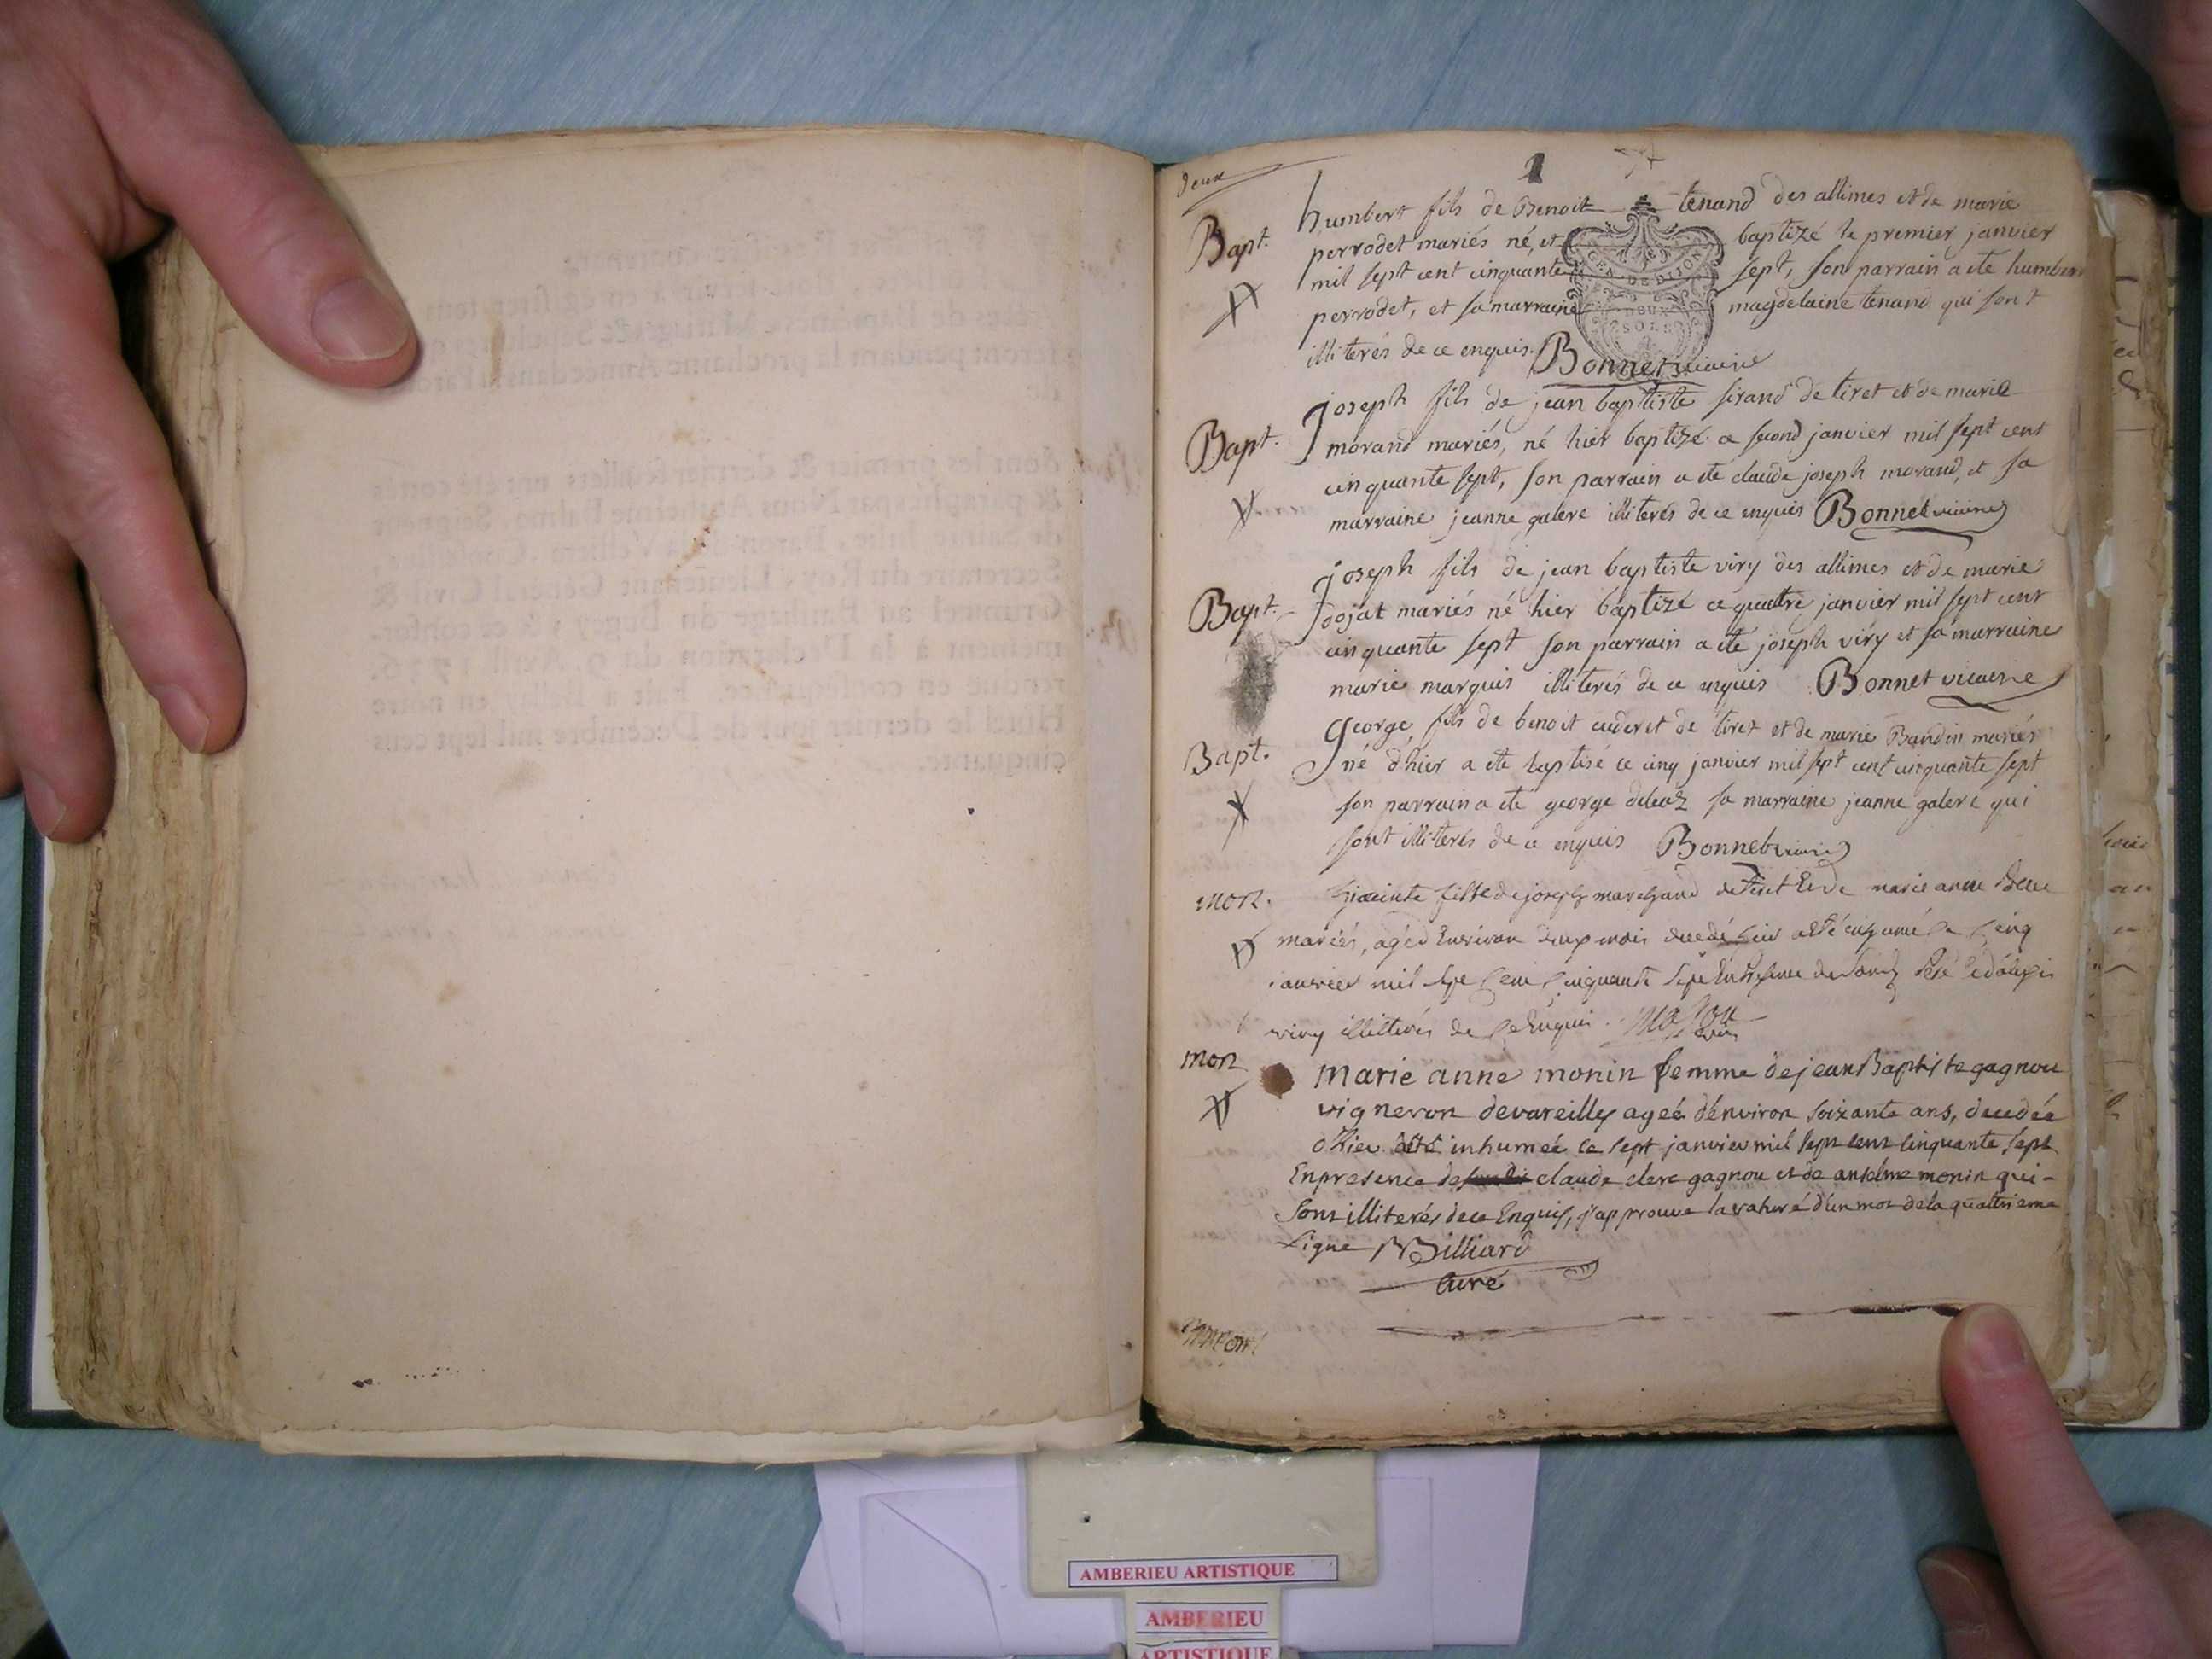 deux
1
Bapt. humbert fils de Benoit tenand des allimes et de marie
perrodet mariés né, et baptizé le premier janvier
mil sept cent cinquante sept, son parrain a ete humbert
perrodet, et sa marraine magdelaine tenand qui sont
illiterés de ce enquis. Bonnet vicaire
GEN. DE DIJON
DEUX
SOLS
Bapt. joseph fils de jean baptiste sirand de tiret et de marie
morand mariés, né hier baptizé ce second janvier mil sept cent
cinquante sept, son parrain a ete claude joseph morand, et sa
marraine jeanne galere illiterés de ce enquis Bonnet vicaire
Bapt. joseph fils de jean baptiste viry des allimes et de marie
dojat mariés né hier baptizé ce quattre janvier mil sept cent
cinquante sept son parrain a ete joseph viry et sa marraine
marie marquis illiterés de ce enquis Bonnet vicaire
Bapt. george fils de benoit cuderet de tiret et de marie Baudin mariés
né d'hier a ete baptisé ce cinq janvier mil sept cent cinquante sept
son parrain a ete george deleaz sa marraine jeanne galere qui
sont illiterés de ce enquis Bonnet vicaire
mort. fille de joseph marchand de tiret et de marie anne
mariés, agéd Environ deux mois decedé hier a été inhumé ce cinq
janvier mil sept cent cinquante sept En presence de
viry illiterés de ce Enquis.
mort marie anne monin femme de jean Baptiste gagnou
vigneron de vareilles ageé d'environ soixante ans, decedée
d'hier a été inhumée ce sept janvier mil sept cent cinquante sept
En presence de claude clerc gagnou et de anselme monin qui -
sont illiterés de ce Enquis, j'approuve la rature d'un mot de la quattrieme
Ligne Billiard
Curé
AMBERIEU ARTISTIQUE
AMBERIEU
ARTISTIQUE